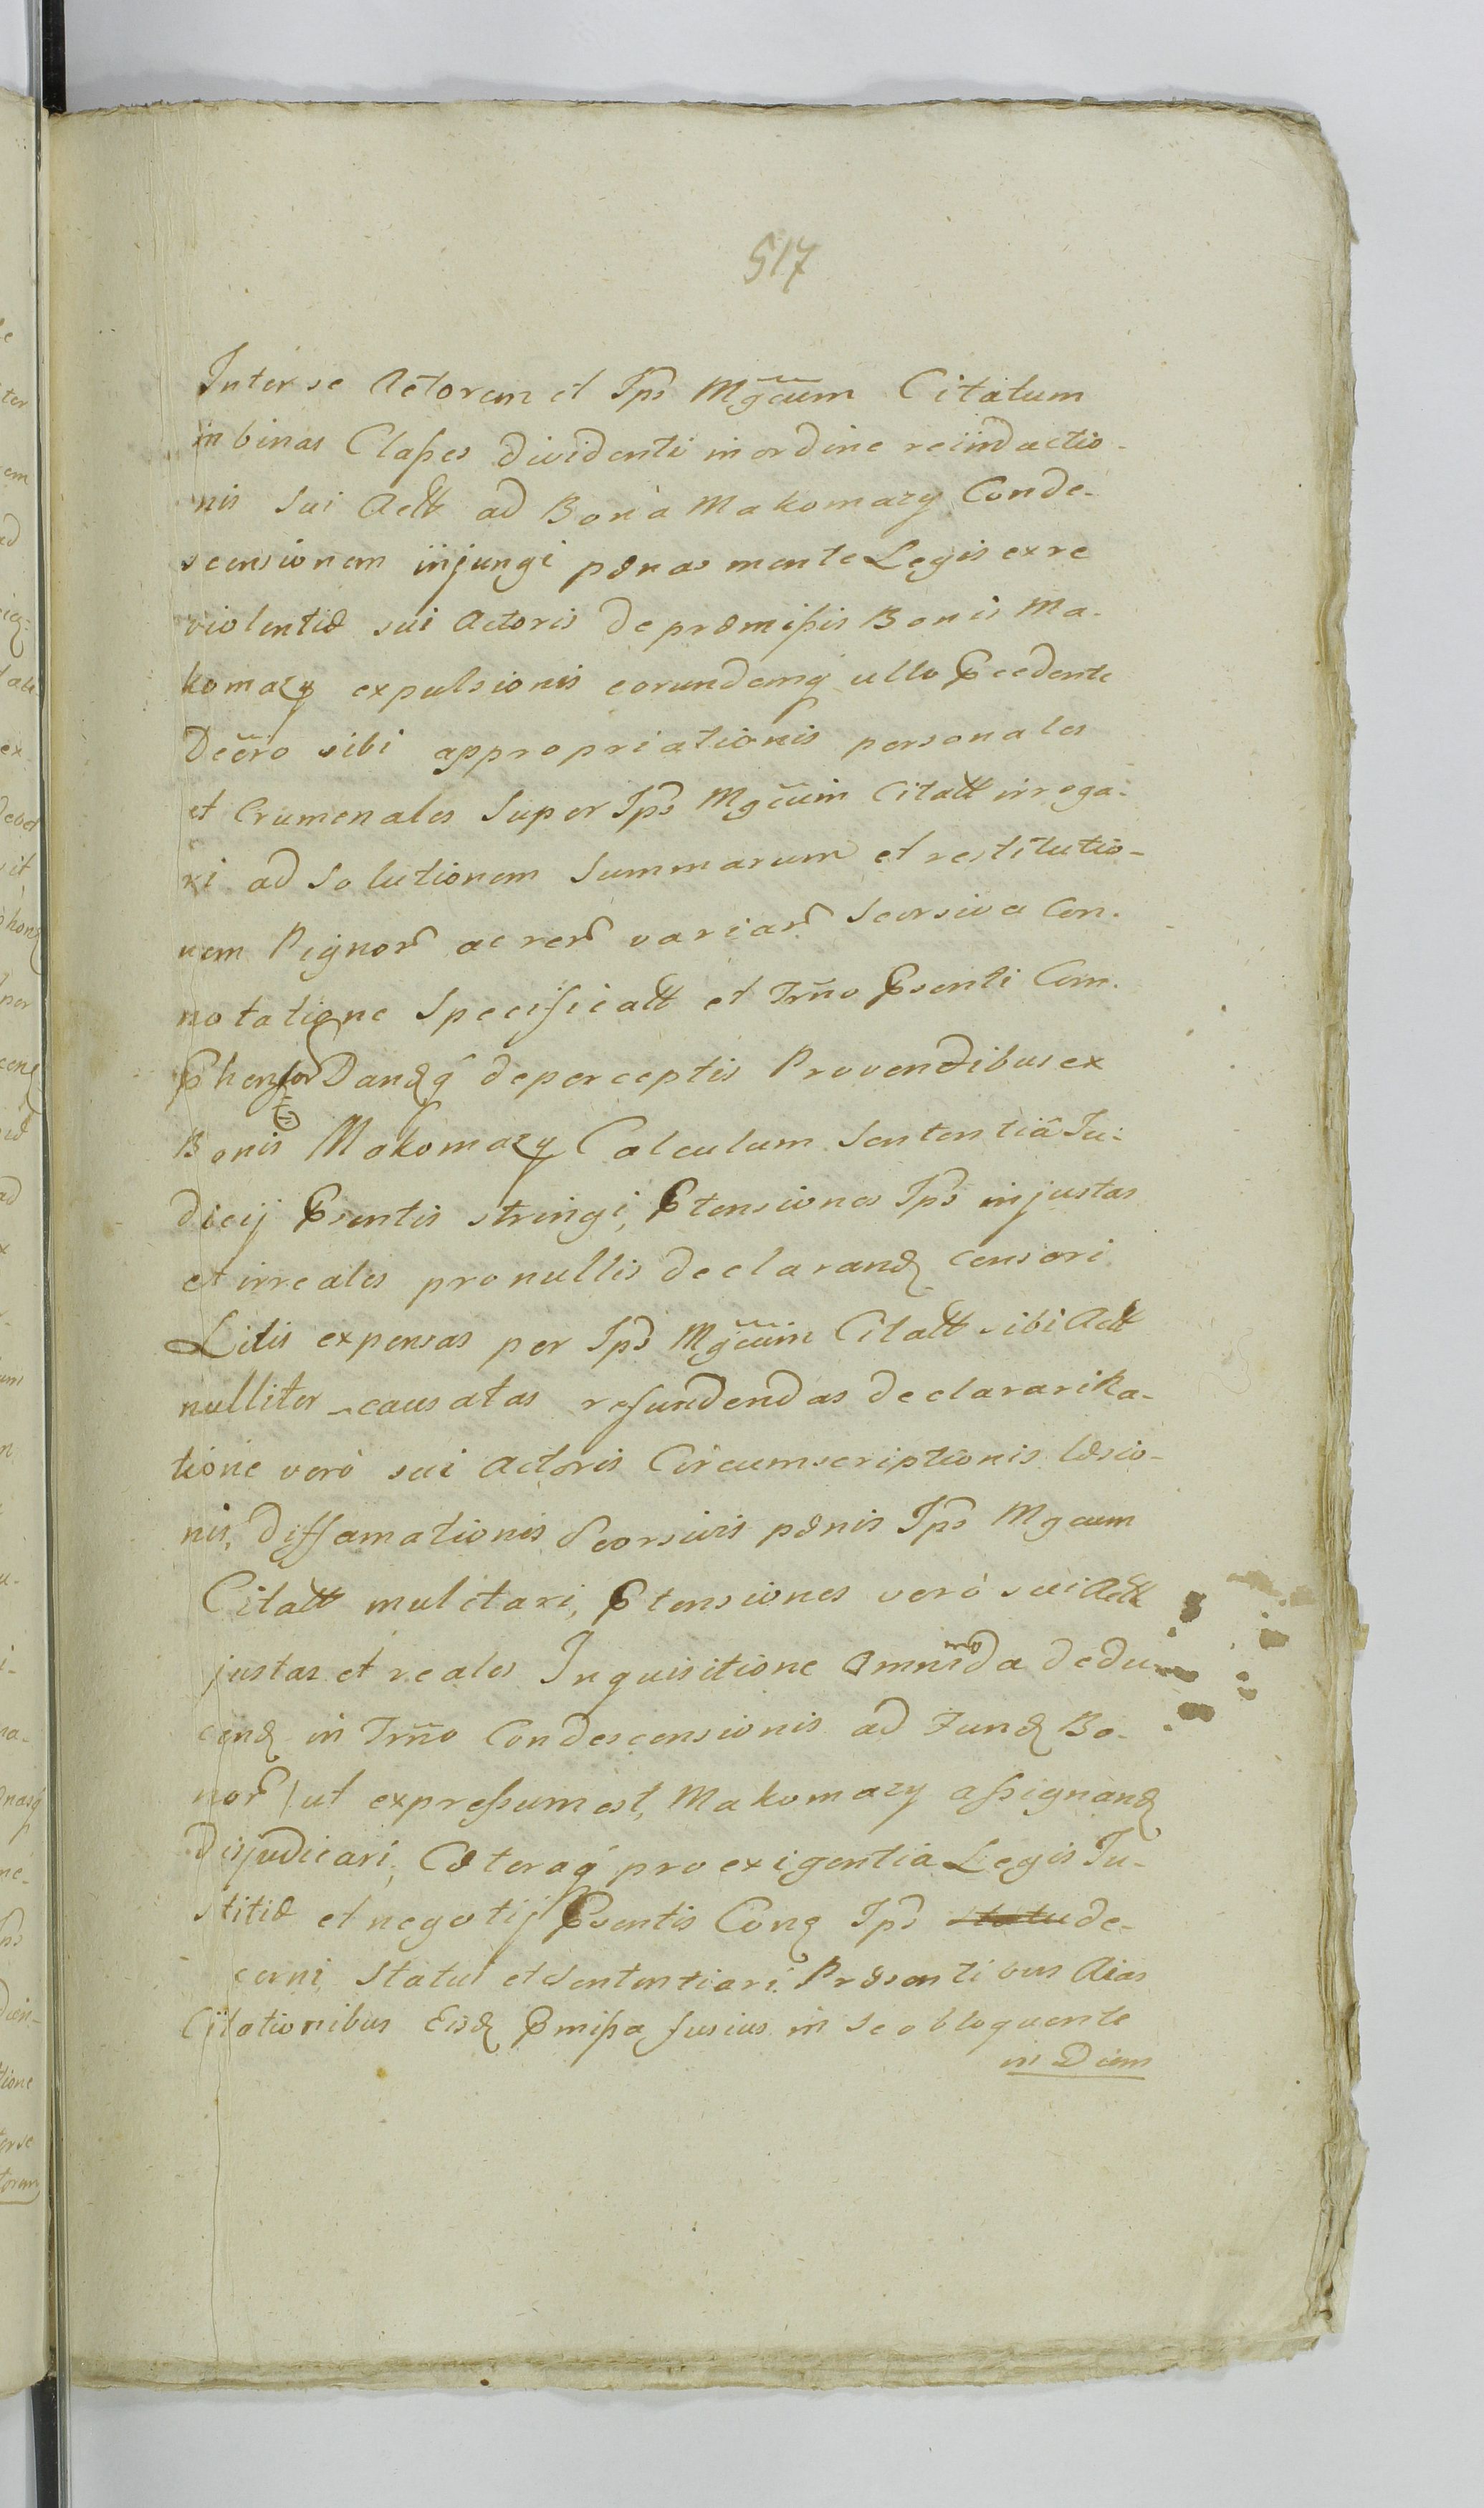 517
Inter se Actorem et Ips Mgcum Citatum
in binas Classes dividenti in ordine reinductio-
nis sui Actt ad Bona Makomazy Conde-
scensionem injungi pænas mente Legis ex re
violentiæ sui Actoris de præmissis Bonis Ma-
komazy expulsionis eorundemq ullo Pcedente
Decro sibi appropriationis personales
et Crumenales super Ips Mgcum Citatt irroga-
ri ad Solutionem Summarum et restitutio-
nem Pignor ac rer variar Seorsiva Con-
notatione Specificatt et Trno Psenti Com-
Phensor Dandq de perceptis Proventibus ex
Bonis Makomazy Calculum Sententiâ Ju-
dicij Psentis stringi, Ptensiones Ips injustas
et irreales pro nullis declarand censeri
Litis expensas per Ips Mgcum Citatt sibi Actt
nulliter causatas refundendas declarari Ra-
tione verò sui Actoris Circumscriptionis læsio-
nis, diffamationis Seorsivis pænis Ips Mgcum
Citatt mulctari, Ptensiones verò sui Actt
justas et reales Inquisitione Omnimoda dedu-
cend in Trno Condescensionis ad Fund Bo-
nor ut expressum est, Makomazy assignand
Disjudicari, Cæteraq pro exigentia Legis Ju-
stitiæ et negotij Psentis Conq Ips statu de-
cerni, Statui et Sententiari. Præsentibus Aias
Citationibus Eisd Pmissa fusius in se obloquente
in Diem